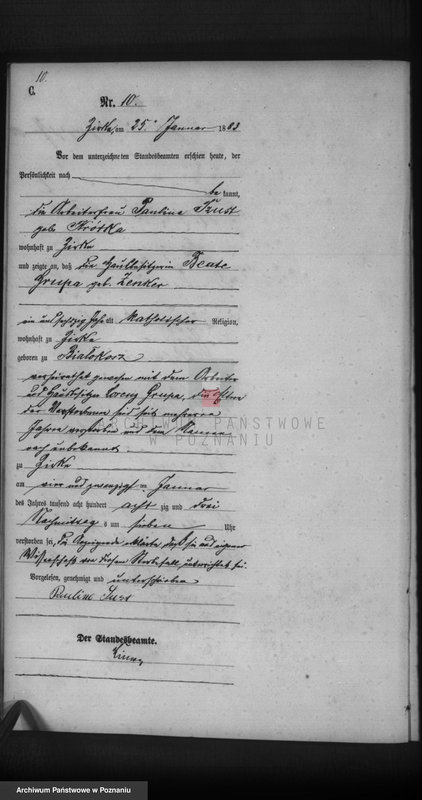 10.
C.
Nr. 10.
Zirke, am 25. Januar 1883
Vor dem unterzeichneten Standesbeamten erschien heute, der
Persönlichkeit nach
be kannt,
die Arbeiterfrau Pauline Tzust
geb. Krótka
wohnhaft zu Zirke
und zeigte an, daß die Häuslerin Beate
Grupa geb. Zenker
ein und sechzig Jahre alt katholischer Religion,
wohnhaft zu Zirke
geboren zu Bialokosz
verheirathet gewesen mit dem Arbeiter
und Grupa, die Eltern
der Verstorbenen sind seit mehreren
Jahren verstorben und dem Namen
nach unbekannt
zu Zirke
am vier und zwanzigsten Januar
des Jahres tausend acht hundert acht zig und drei
Nachmittags um sieben Uhr
verstorben sei, die Anzeigende erklärte, daß sie aus eigener
Wissenschaft von diesem Sterbefall unterrichtet sei.
Vorgelesen, genehmigt und unterschrieben
Pauline
Der Standesbeamte.
ARCHIWUM PAŃSTWOWE
W POZNANIU
Archiwum Państwowe w Poznaniu